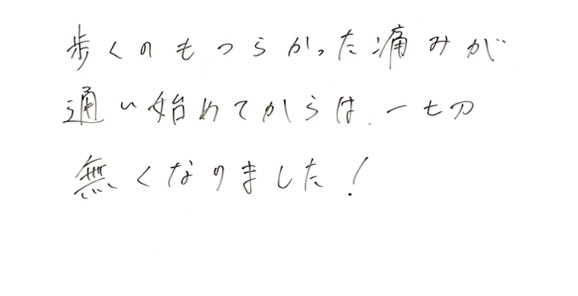 歩くのもつらかった痛みが
通い始めてからは、一切
無くなりました！